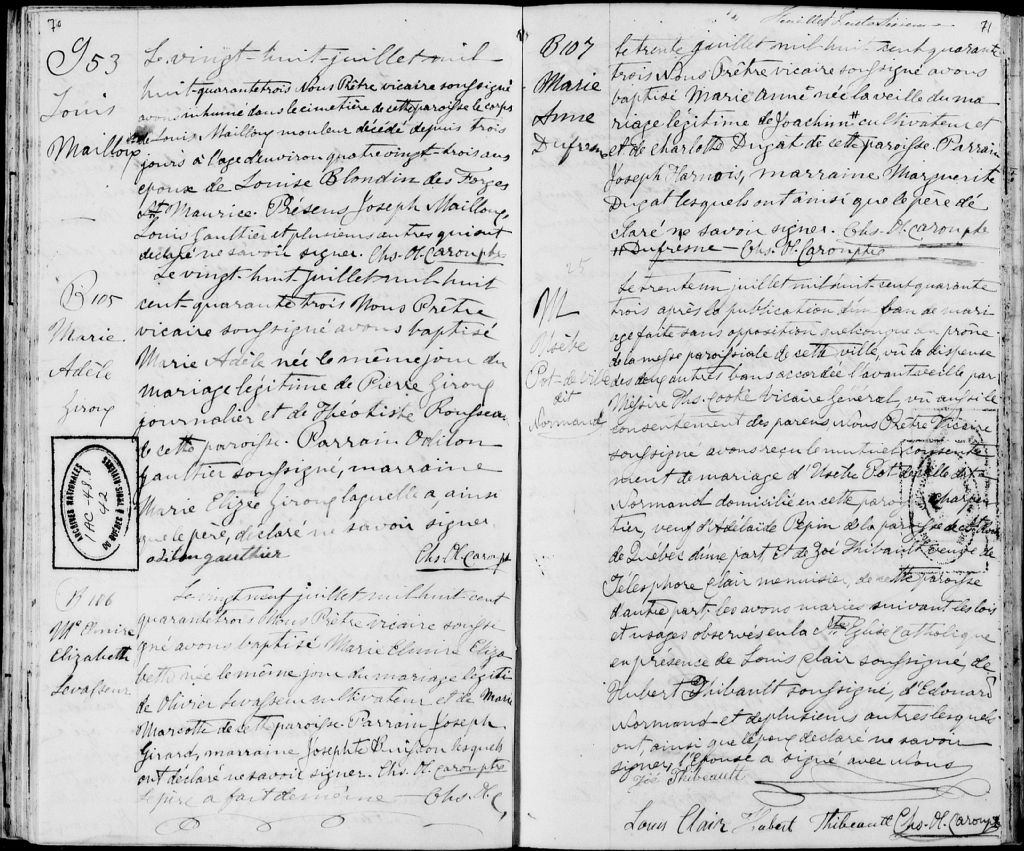 70
S 53
Louis
Mailloux
Le vingt-huit juillet mil
huit-quarante trois Nous Prêtre vicaire soussigné
avons inhumé dans le cimetière de cette paroisse le corps
de Louis Mailloux mouleur décédé depuis trois
jours à l'age d'environ quatre vingt-trois ans
epoux de Louise Blondin des Forges
St Maurice. Présens Joseph Mailloux,
Louis Gauthier et plusieurs autres qui ont
déclaré ne savoir signer. Chs. Ol. Caron ptre
B 105
Marie
Adèle
Giroux
Le vingt-huit juillet mil huit
cent-quarante trois Nous Prêtre
vicaire soussigné avons baptisé
Marie Adèle née le même jour du
mariage légitime de Pierre Giroux
journalier et de Théotiste Rousseau
de cette paroisse. Parrain Odilon
Gauthier soussigné, marraine
Marie Elizée Giroux laquelle a, ainsi
que le père, déclaré ne savoir signer.
odilon gauthier Chs. Ol. Caron pt
ARCHIVES NATIONALES
1 AC-48
42
DU QUÉBEC À TROIS-RIVIÈRES
B 106
Mie Elmire
Elizabeth
Levasseur
Le vingt neuf juillet mil huit cent
quarante trois Nous Prêtre vicaire soussi
gné avons baptisé Marie Elmire Eliza
beth née le même jour du mariage légiti
de Olivier Levasseur cultivateur et de Marie
Marcotte de cette paroisse. Parrain Joseph
Girard, marraine Josephte Buisson lesquels
ont déclaré ne savoir signer. Chs. Ol. Caron ptre
Le père a fait de même Chs. Ol. C
71
B 107
Marie
Anne
Dufresne
Le trente juillet mil huit cent quarante
trois Nous Prêtre vicaire soussigné avons
baptisé Marie Anne née la veille du ma
riage légitime de Joachim # cultivateur et
et de Charlotte Dugat de cette paroisse. Parrain
Joseph Harnois, marraine Marguerite
Dugat lesquels ont ainsi que le père dé
claré ne savoir signer. Chs. Ol. Caron ptre
# Dufresne — Chs. Ol. Caron ptre
25
M
Usèbe
Pot-de-ville
dit
Normand
Le trente un juillet mil huit cent quarante
trois après la publication d'un ban de mari
age faite sans opposition quelconque au prône
de la messe paroissiale de cette ville, vû la dispense
des deux autres bans accordée l'avant veille par
Messire Ths. Cooke vicaire Général, vû aussi le
consentement des parens Nous Prêtre Vicaire
soussigné avons reçu le mutuel consente
ment de mariage d'Usèbe Pot de ville dit
Normand domicilié en cette paroisse charpen
tier, veuf d'Adelaide Pepin de la paroisse de
de Québec d'une part Et de Zoé Thibault veuve de
Télesphore Clair menuisier, de cette paroisse
d'autre part. les avons mariés suivant les lois
et usages observés en la Ste Eglise Catholique
en présence de Louis Clair soussigné de
Hubert Thibault soussigné, d'Edouard
Normand et de plusieurs autres lesquels
ont, ainsi que l'epoux declaré ne savoir
signer, l'Epouse a signé avec nous
Zoé Thibeault
Louis Clair Hubert Thibeault Chs. Ol. Caron ptre